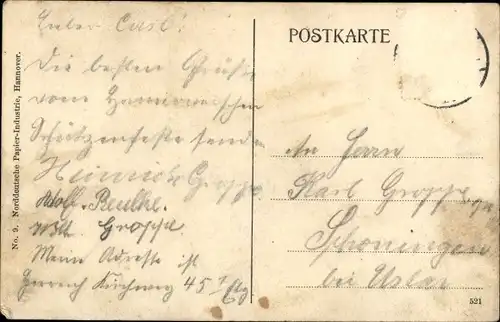 Lieber Carl!
Die besten Grüße
vom Hannoverschen
Schützenfeste senden
Heinrich Groppe
Adolf Reulke.
Groppe
Meine Adresse ist
Kirchweg 45 I Etg
No. 9. Norddeutsche Papier-Industrie, Hannover.
POSTKARTE
An Herrn
Karl Groppe
Schoningen
bei Uslar
521